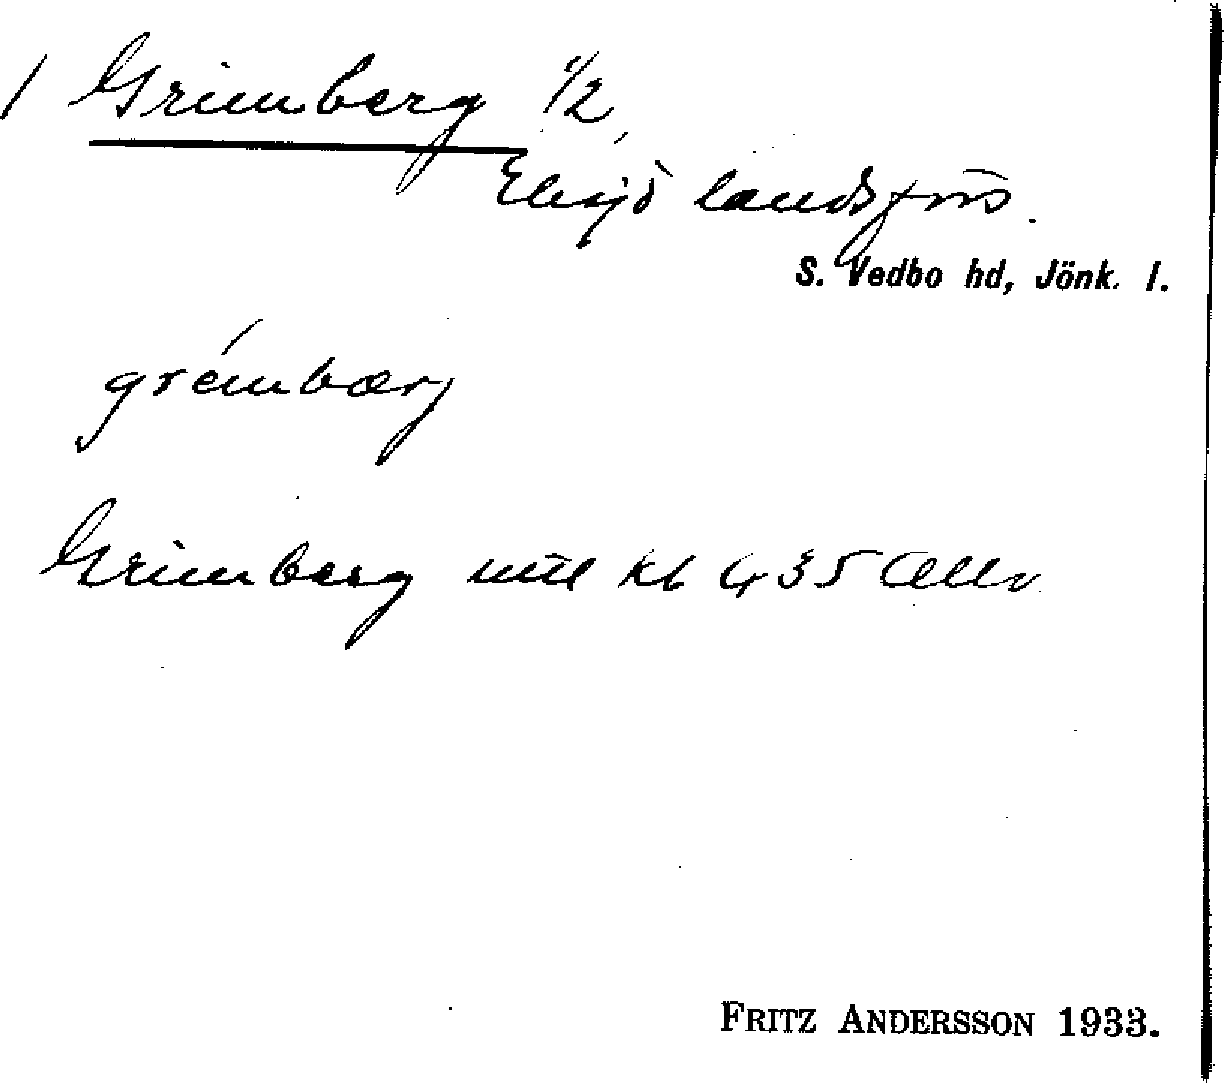 / Grimberg 1/2
Eksjö landsförs.
S. Vedbo hd, Jönk. l.
grémbærj
Grimberg mtl kb 435
FRITZ ANDERSSON 1933.